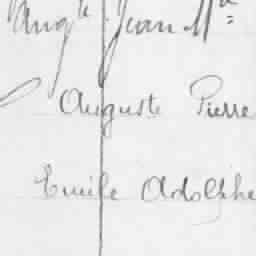 Jean Mie
Auguste Pierre
Emile Adolphe